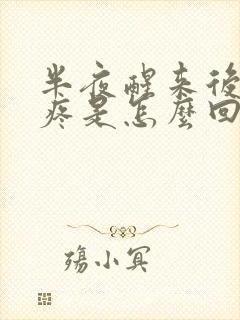 半夜醒来後
疼是怎麼回
殇小冥